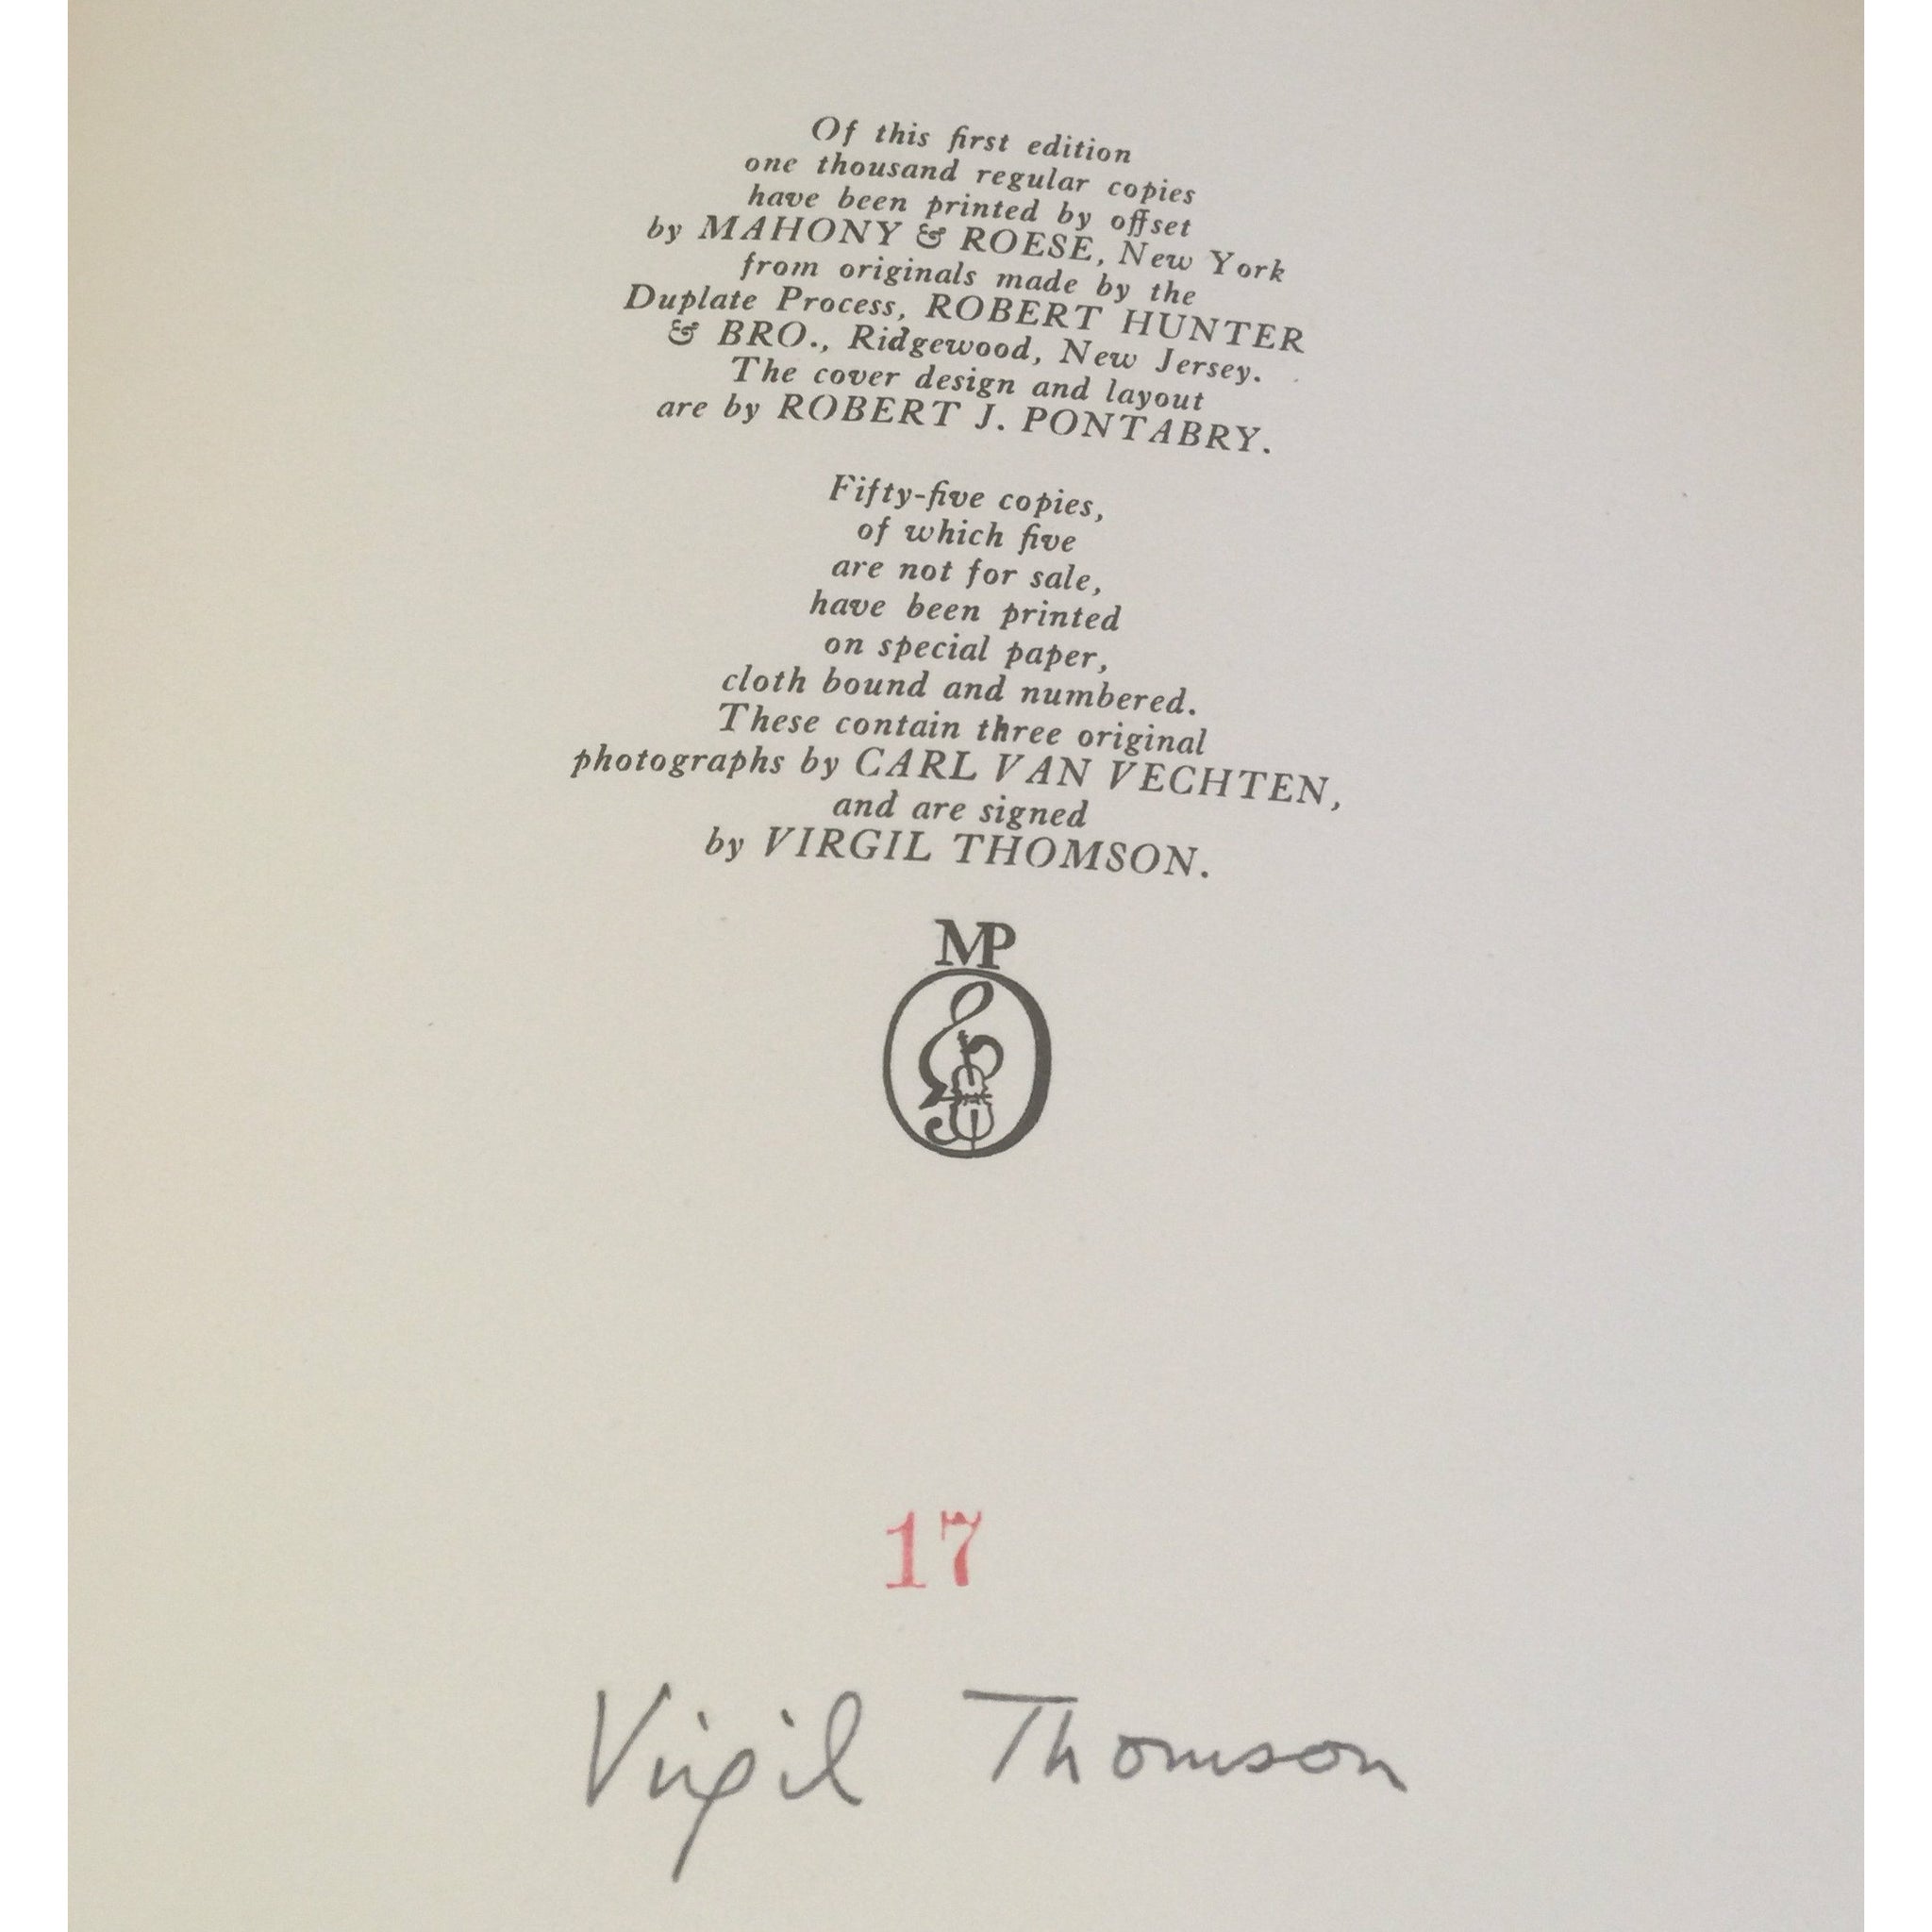 Of this first edition
one thousand regular copies
have been printed by offset
by MAHONY & ROESE, New York
from originals made by the
Duplate Process, ROBERT HUNTER
& BRO., Ridgewood, New Jersey.
The cover design and layout
are by ROBERT J. PONTABRY.
Fifty-five copies,
of which five
are not for sale,
have been printed
on special paper,
cloth bound and numbered.
These contain three original
photographs by CARL VAN VECHTEN,
and are signed
by VIRGIL THOMSON.
MP
17
Virgil Thomson